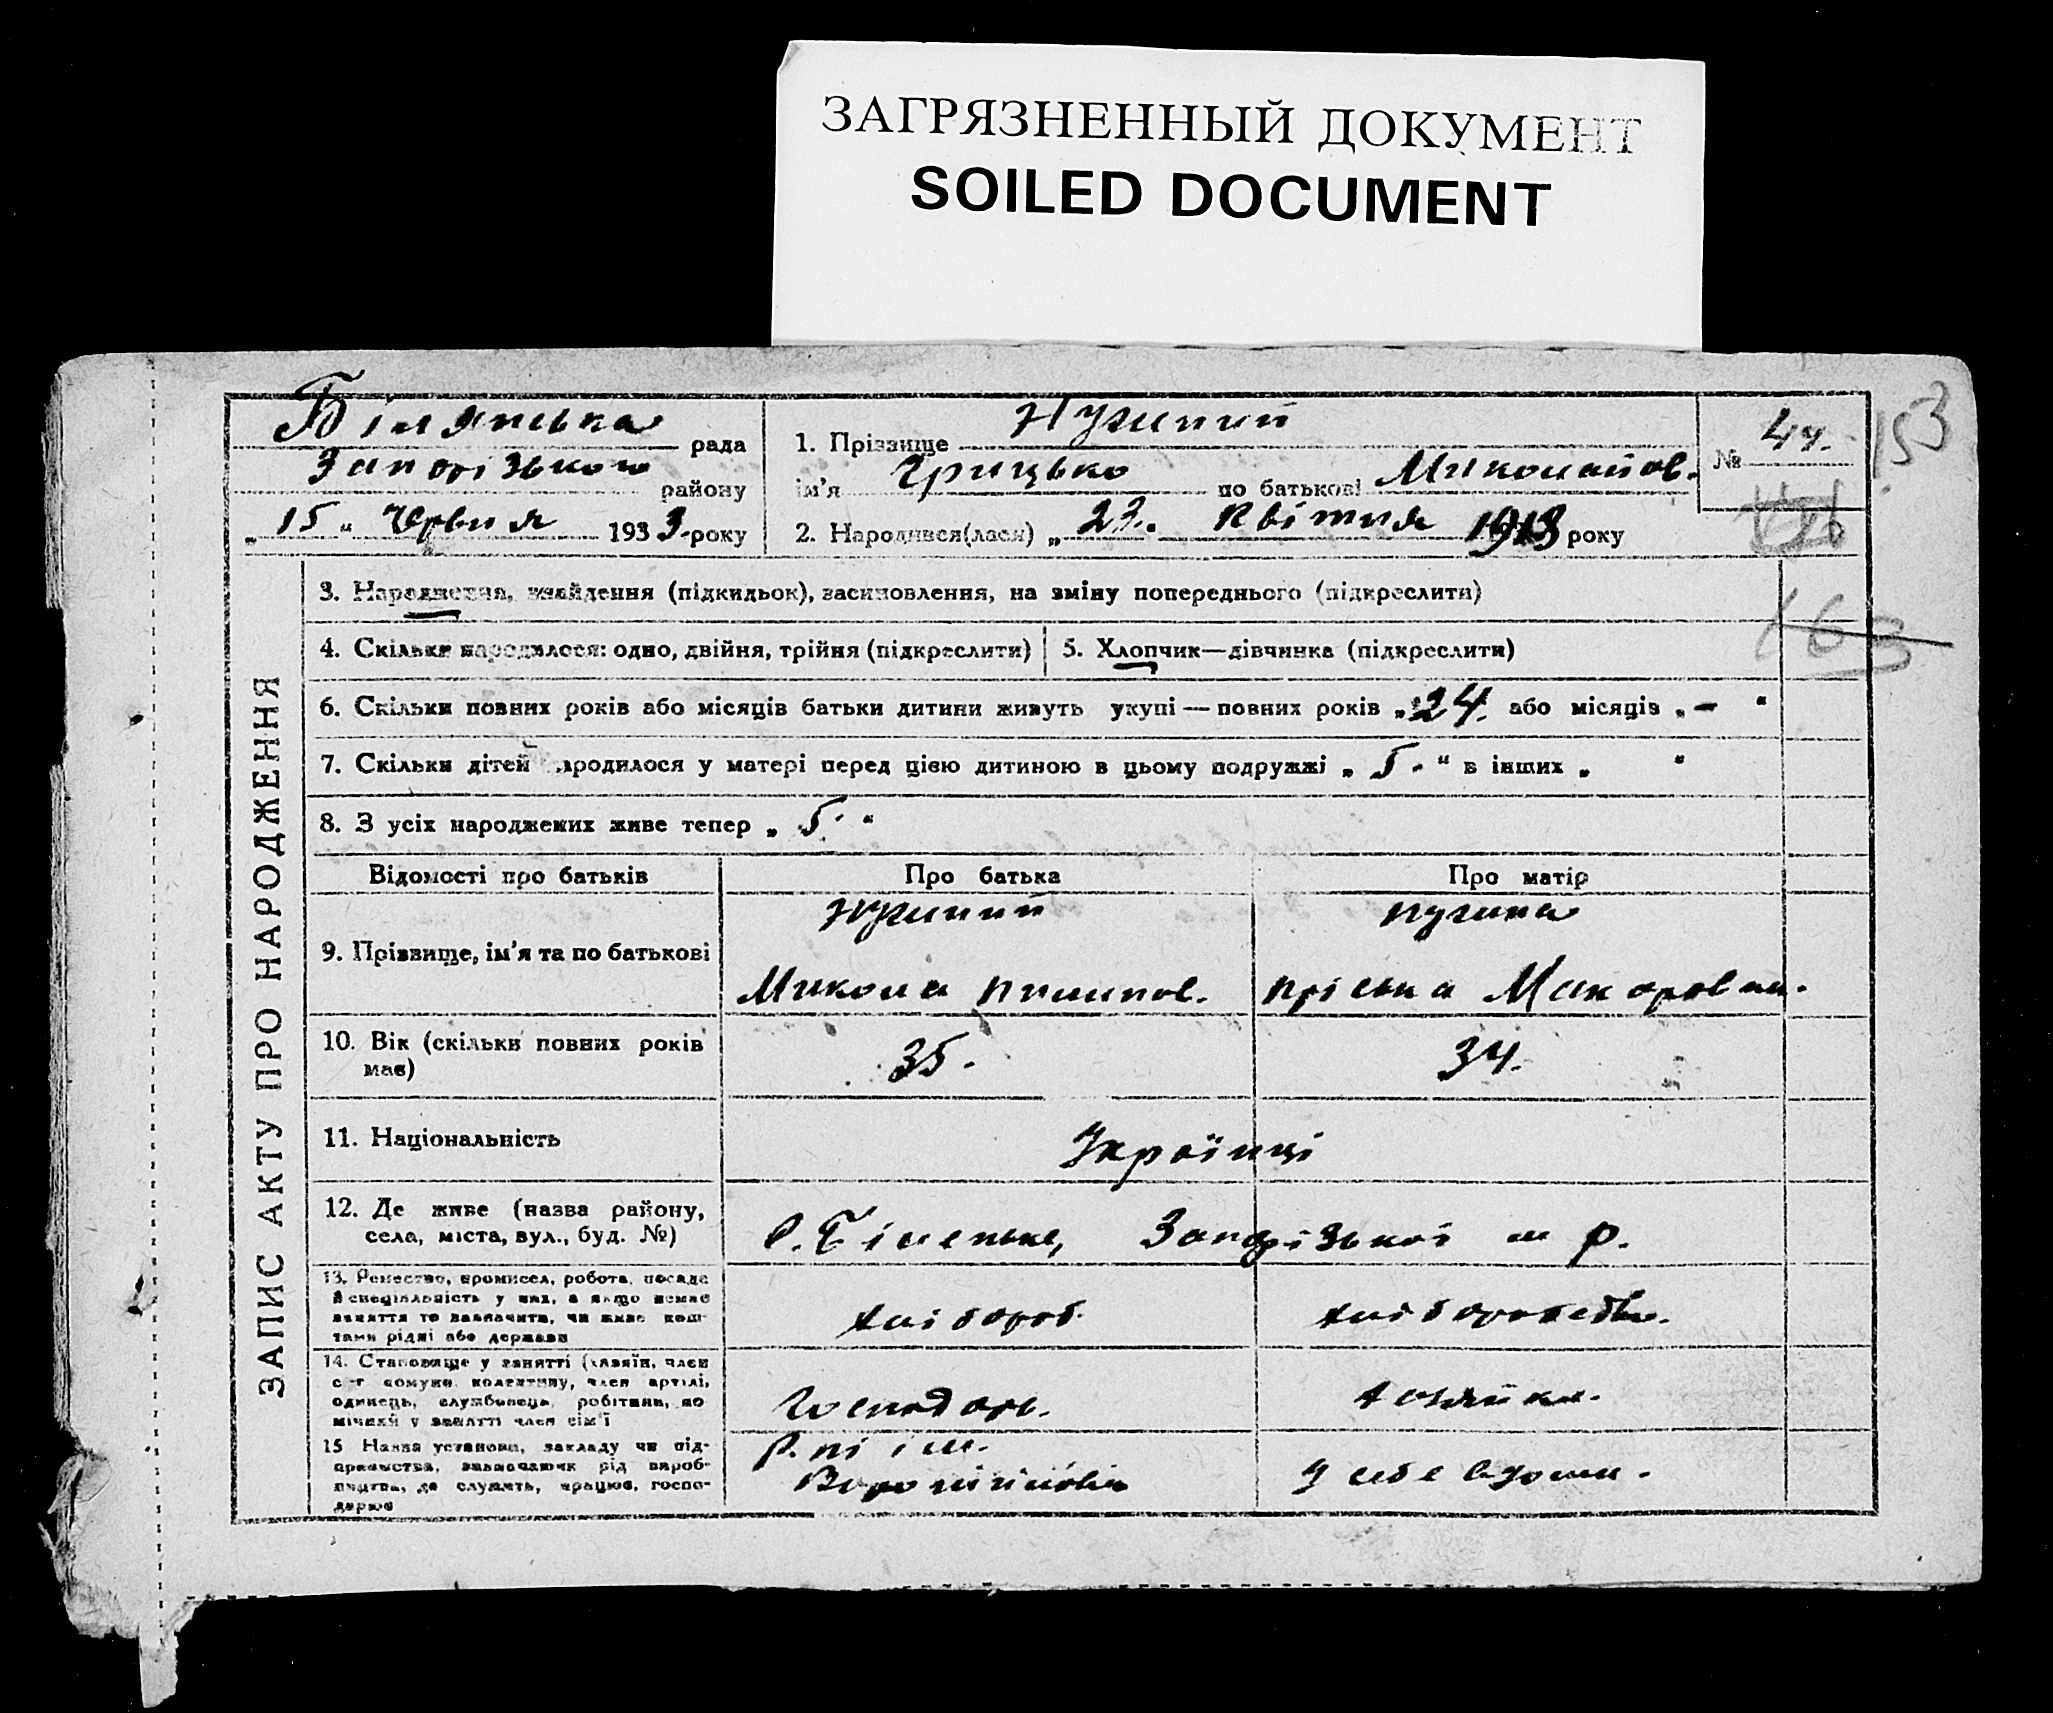 ЗАГРЯЗНЕННЫЙ ДОКУМЕНТ
SOILED DOCUMENT
Білянська рада
Запорізького району
„15“ Червня 1933 року
1. Прізвище
ім'я Грицько по батькові Миколайов.
2. Народився(лася) „23“ Квітня 1913 року
№ 44.
153
163
ЗАПИС АКТУ ПРО НАРОДЖЕННЯ
3. Народження, знайдення (підкидьок), засиновлення, на зміну попереднього (підкреслити)
4. Скільки народилося: одно, двійня, трійня (підкреслити)
5. Хлопчик—дівчинка (підкреслити)
6. Скільки повних років або місяців батьки дитини живуть укупі — повних років „24.“ або місяців „-“
7. Скільки дітей народилося у матері перед цією дитиною в цьому подружжі „5.“ в інших „ “
8. З усіх народжених живе тепер „5.“
Відомості про батьків
Про батька
Про матір
9. Прізвище, ім'я та по батькові
Микола Пилипов.
Пріська Макаровна.
10. Вік (скільки повних років має)
35.
34.
11. Національність
Українці
12. Де живе (назва району, села, міста, вул., буд. №)
с. Біленьке, Запорізької м р.
13. Ремество, промисел, робота, посада й спеціяльність у них, а якщо немає заняття то зазначити, чи живе коштами рідні або держави
хлібороб.
хліборобство.
14. Становище у занятті (хазяїн, член с-г комуни, колективу, член артілі, одинець, службовець, робітник, помічний у занятті член сім'ї
Господарь.
хазяйка.
15 Назва установи, закладу чи підприємства, зазначаючи рід виробництва, де служить, працює, господарює
Р. пі ім.
Ворошилова
у себе вдома.